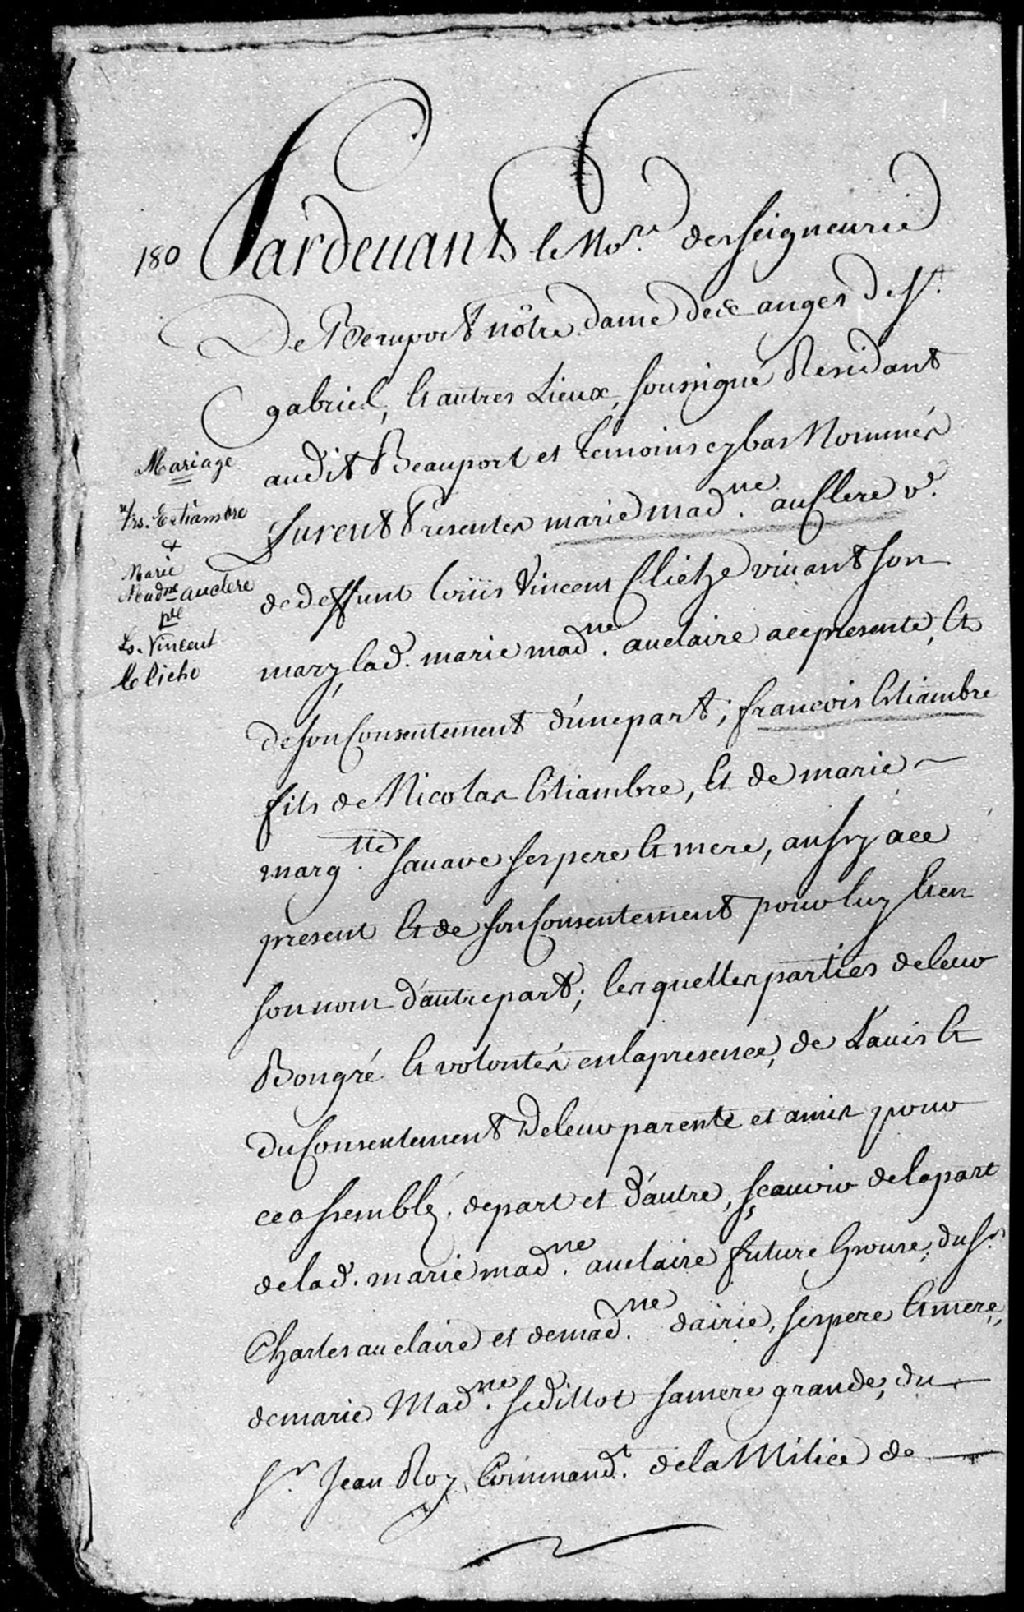 180 Pardevant le No.re des seigneurie
De Beauport nôtre dame des anges de St.
gabriel, et autres Lieux, soussigné Residant
audit Beauport et temoins cy bas Nommés
furent Presentes marie mad.ne auclere v.e
de deffunt louis Vincent Clichе vivant son
mary, lad. marie mad.ne auclaire a ce presente, et
de son Consentement d'une part; francois Estiambre
fils de Nicolas Estiambre, et de marie
marg.tte sauave ses pere et mere, aussy a ce
present et de son Consentement pour luy et en
son nom d'autre part; lesquelles parties de leur
Bon gré et volontés en la presence, de L'avis et
du Consentement De leur parents et amis pour
ce assemblé, de part et d'autre, sçauoir de la part
de la d. marie mad.ne auclaire future Epouse, du Sr.
Charles auclaire et de mad.ne dairie, ses pere et mere,
de marie Mad.ne Sedillot sa mere grande, du
Sr. Jean Roy, Command.t de la Milice de
Mariage
frs. Estiambre
&
Marie
Magd.ne auclere
v.e
Ls. Vincent
Cliche